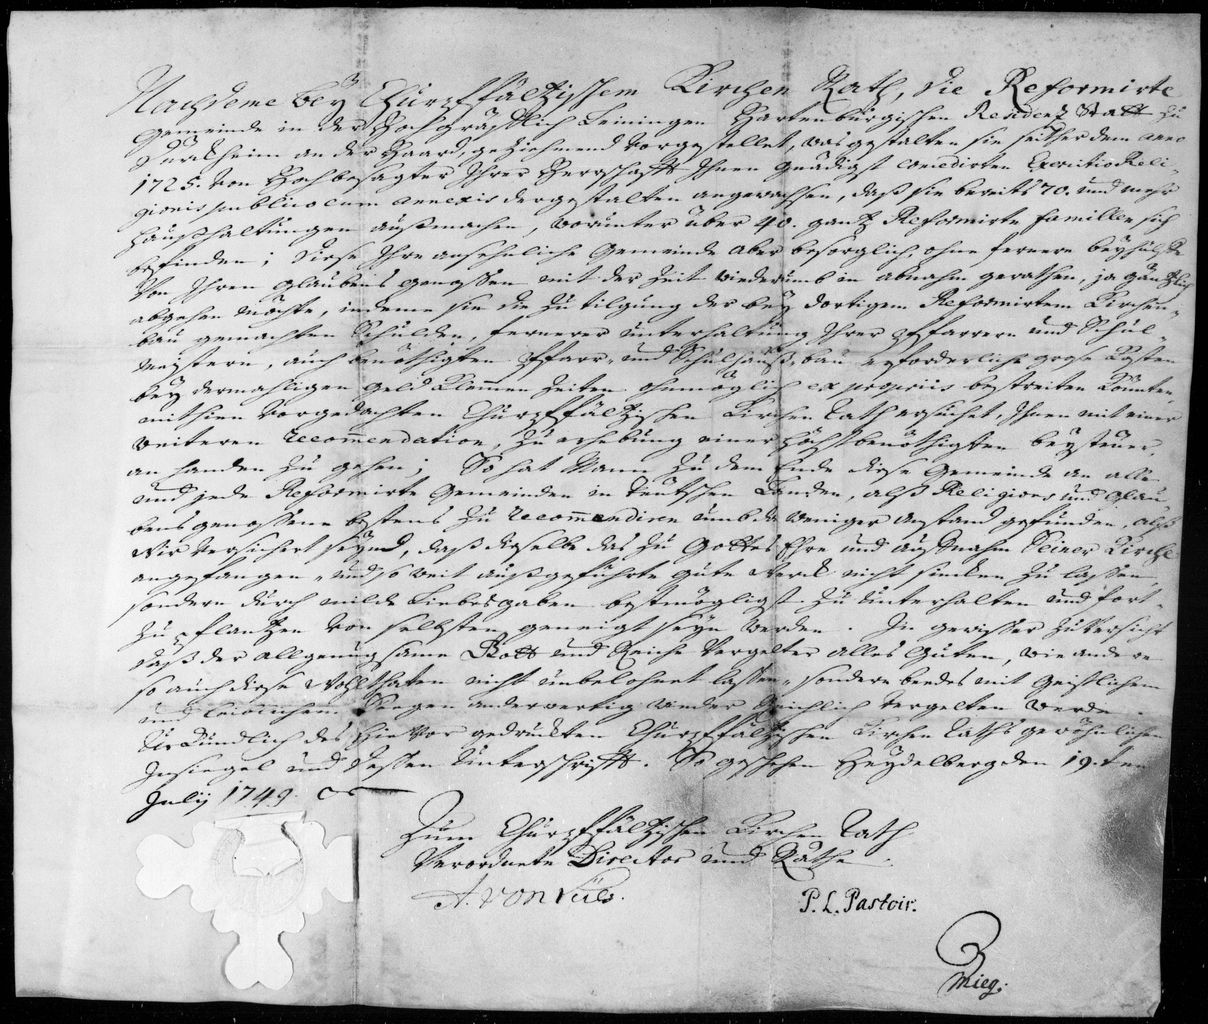 Nachdeme beÿ Churpfältzischem Kirchen Rath, die Reformirte
Gemeinde in der Hochgräfflich Leiningen Hartenburgischen Residentz Statt zu
Dürckheim an der Haard, geziehmend vorgestellet, was gestalten sie seither dem anno
1725. von Hochbesagter Ihrer Herrschafft Ihnen Gnädigst concedirten Exercitio Reli-
gionis publico cum annexis dergestalten angewachsen, daß sie bereits 70. und mehr
Haußhaltungen außmachen, worunter über 40. gantz Reformirte familien sich
befinden; diese Ihre ansehnliche Gemeinde aber besorglich, ohne fernere beÿhülffe
von Ihren Glaubens genossen mit der Zeit wiederumb in abnahm gerathen, ja gäntzlich
abgehen möchte, indeme sie die zu tilgung der beÿ dortigem Reformirtem Kirchen-
bau gemachten Schulden, fernerer unterhaltung Ihrer Pfarrern und Schul-
meistern, auch benöthigten Pfarr- und Schulhauß-bau erforderliche grose Kosten
beÿ dermahligen Geld Klemmen Zeiten ohnmöglich ex propriis bestreiten könten,
mithin vorgedachten Churpfältzischen Kirchen Rath ersuchet, Ihnen mit einer
weiteren recomendation, zu erhebung einer höchstbenöthigten beÿsteuer,
an handen zu gehen; So hat Mann zu dem Ende diese Gemeinde an alle
und jede Reformirte Gemeinden in Teutschen Landen, alß Religions und Glau-
bens genossene bestens zu recommendiren umb da weniger anstand gefunden, alß
Wir versichert seÿnd, daß dieselbe das zu Gottes Ehre und auffnahm Seiner Kirche
angefangen- und so weit außgeführte gute Werck nicht sincken zu lassen,
sondern durch milde Liebesgaben bestmöglichst zu unterhalten und fort-
zupflantzen von selbsten geneigt seÿn werden. In gewisser Zuversicht
daß der allgenungsame Gott und Reiche Vergelter alles Guten, wie andere
so auch diese Wohlthaten nicht unbelohnet lassen, sondern beedes mit Geistlichem
und leiblichem Seegen anderwertig wieder Reichlich vergelten werde.
Urkundlich des hievor gedruckten Churpfältzischen Kirchen Raths gewöhnlichen
Insiegel und dessen Unterschrifft. So geschehen Heÿdelberg den 19.ten
Julÿ 1749.
Zum Churpfältzischen Kirchen Rath
Verordnete Director und Räthe.
P. L. Pastoir.
Mieg.